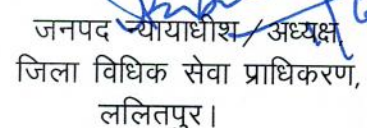 जनपद न्यायाधीश / अध्यक्ष,
जिला विधिक सेवा प्राधिकरण,
ललितपुर।